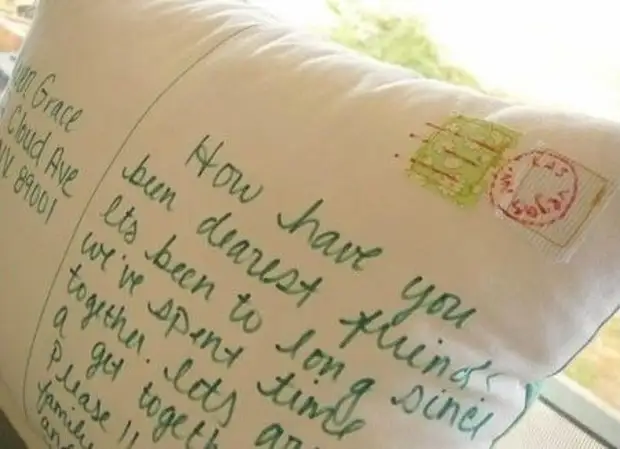 Grace
Cloud Ave
NV 89001
How have you
been dearest friend
Its been to long since
we've spent time
together. lots
a get togeth
Please !!
family
LAS VEGAS